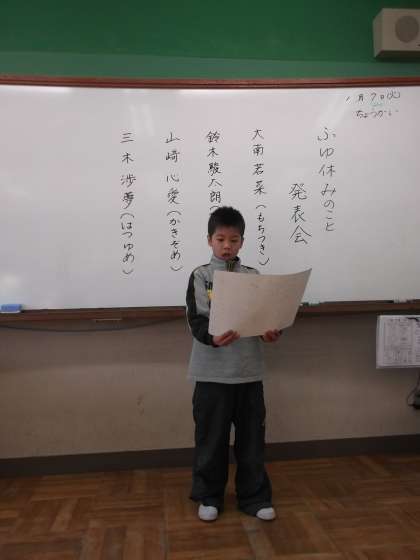 1月7日(火)
ちょうかい
ふゆ休みのこと
発表会
大南若菜(もちつき)
鈴木駿太朗(
山崎心愛(かきぞめ)
三木渉夢(はつゆめ)